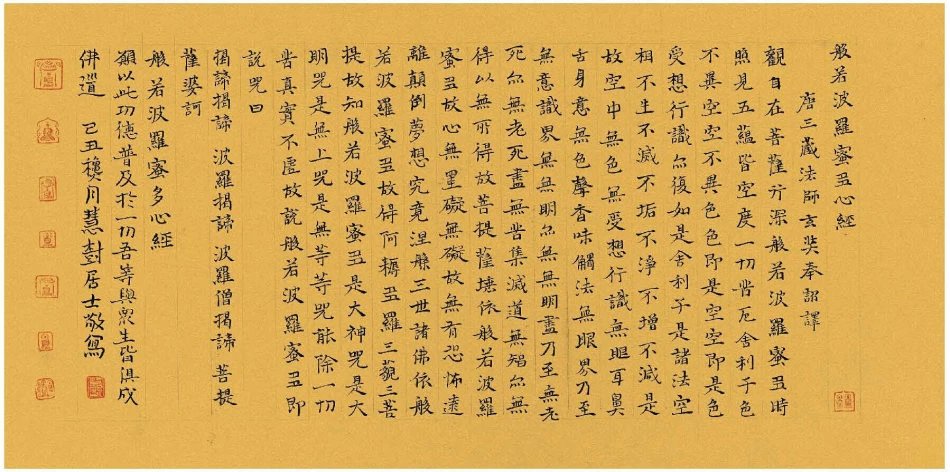 般若波羅蜜多心經
唐三藏法師玄奘奉詔譯
觀自在菩薩行深般若波羅蜜多時
照見五蘊皆空度一切苦厄舍利子色
不異空空不異色色即是空空即是色
受想行識尒復如是舍利子是諸法空
相不生不滅不垢不淨不增不減是
故空中無色無受想行識無眼耳鼻
舌身意無色聲香味觸法無眼界乃至
無意識界無無明尒無無明盡乃至無老
死尒無老死盡無苦集滅道無智尒無
得以無所得故菩提薩埵依般若波羅
蜜多故心無罣礙無礙故無有恐怖遠
離顛倒夢想究竟涅槃三世諸佛依般
若波羅蜜多故得阿耨多羅三藐三菩
提故知般若波羅蜜多是大神咒是大
明咒是無上咒是無等等咒能除一切
苦真實不虛故說般若波羅蜜多即
說咒曰
揭諦揭諦 波羅揭諦 波羅僧揭諦 菩提
薩婆訶
般若波羅蜜多心經
願以此功德普及於一切吾等與眾生皆俱成
佛道 己丑 月慧 居士敬寫